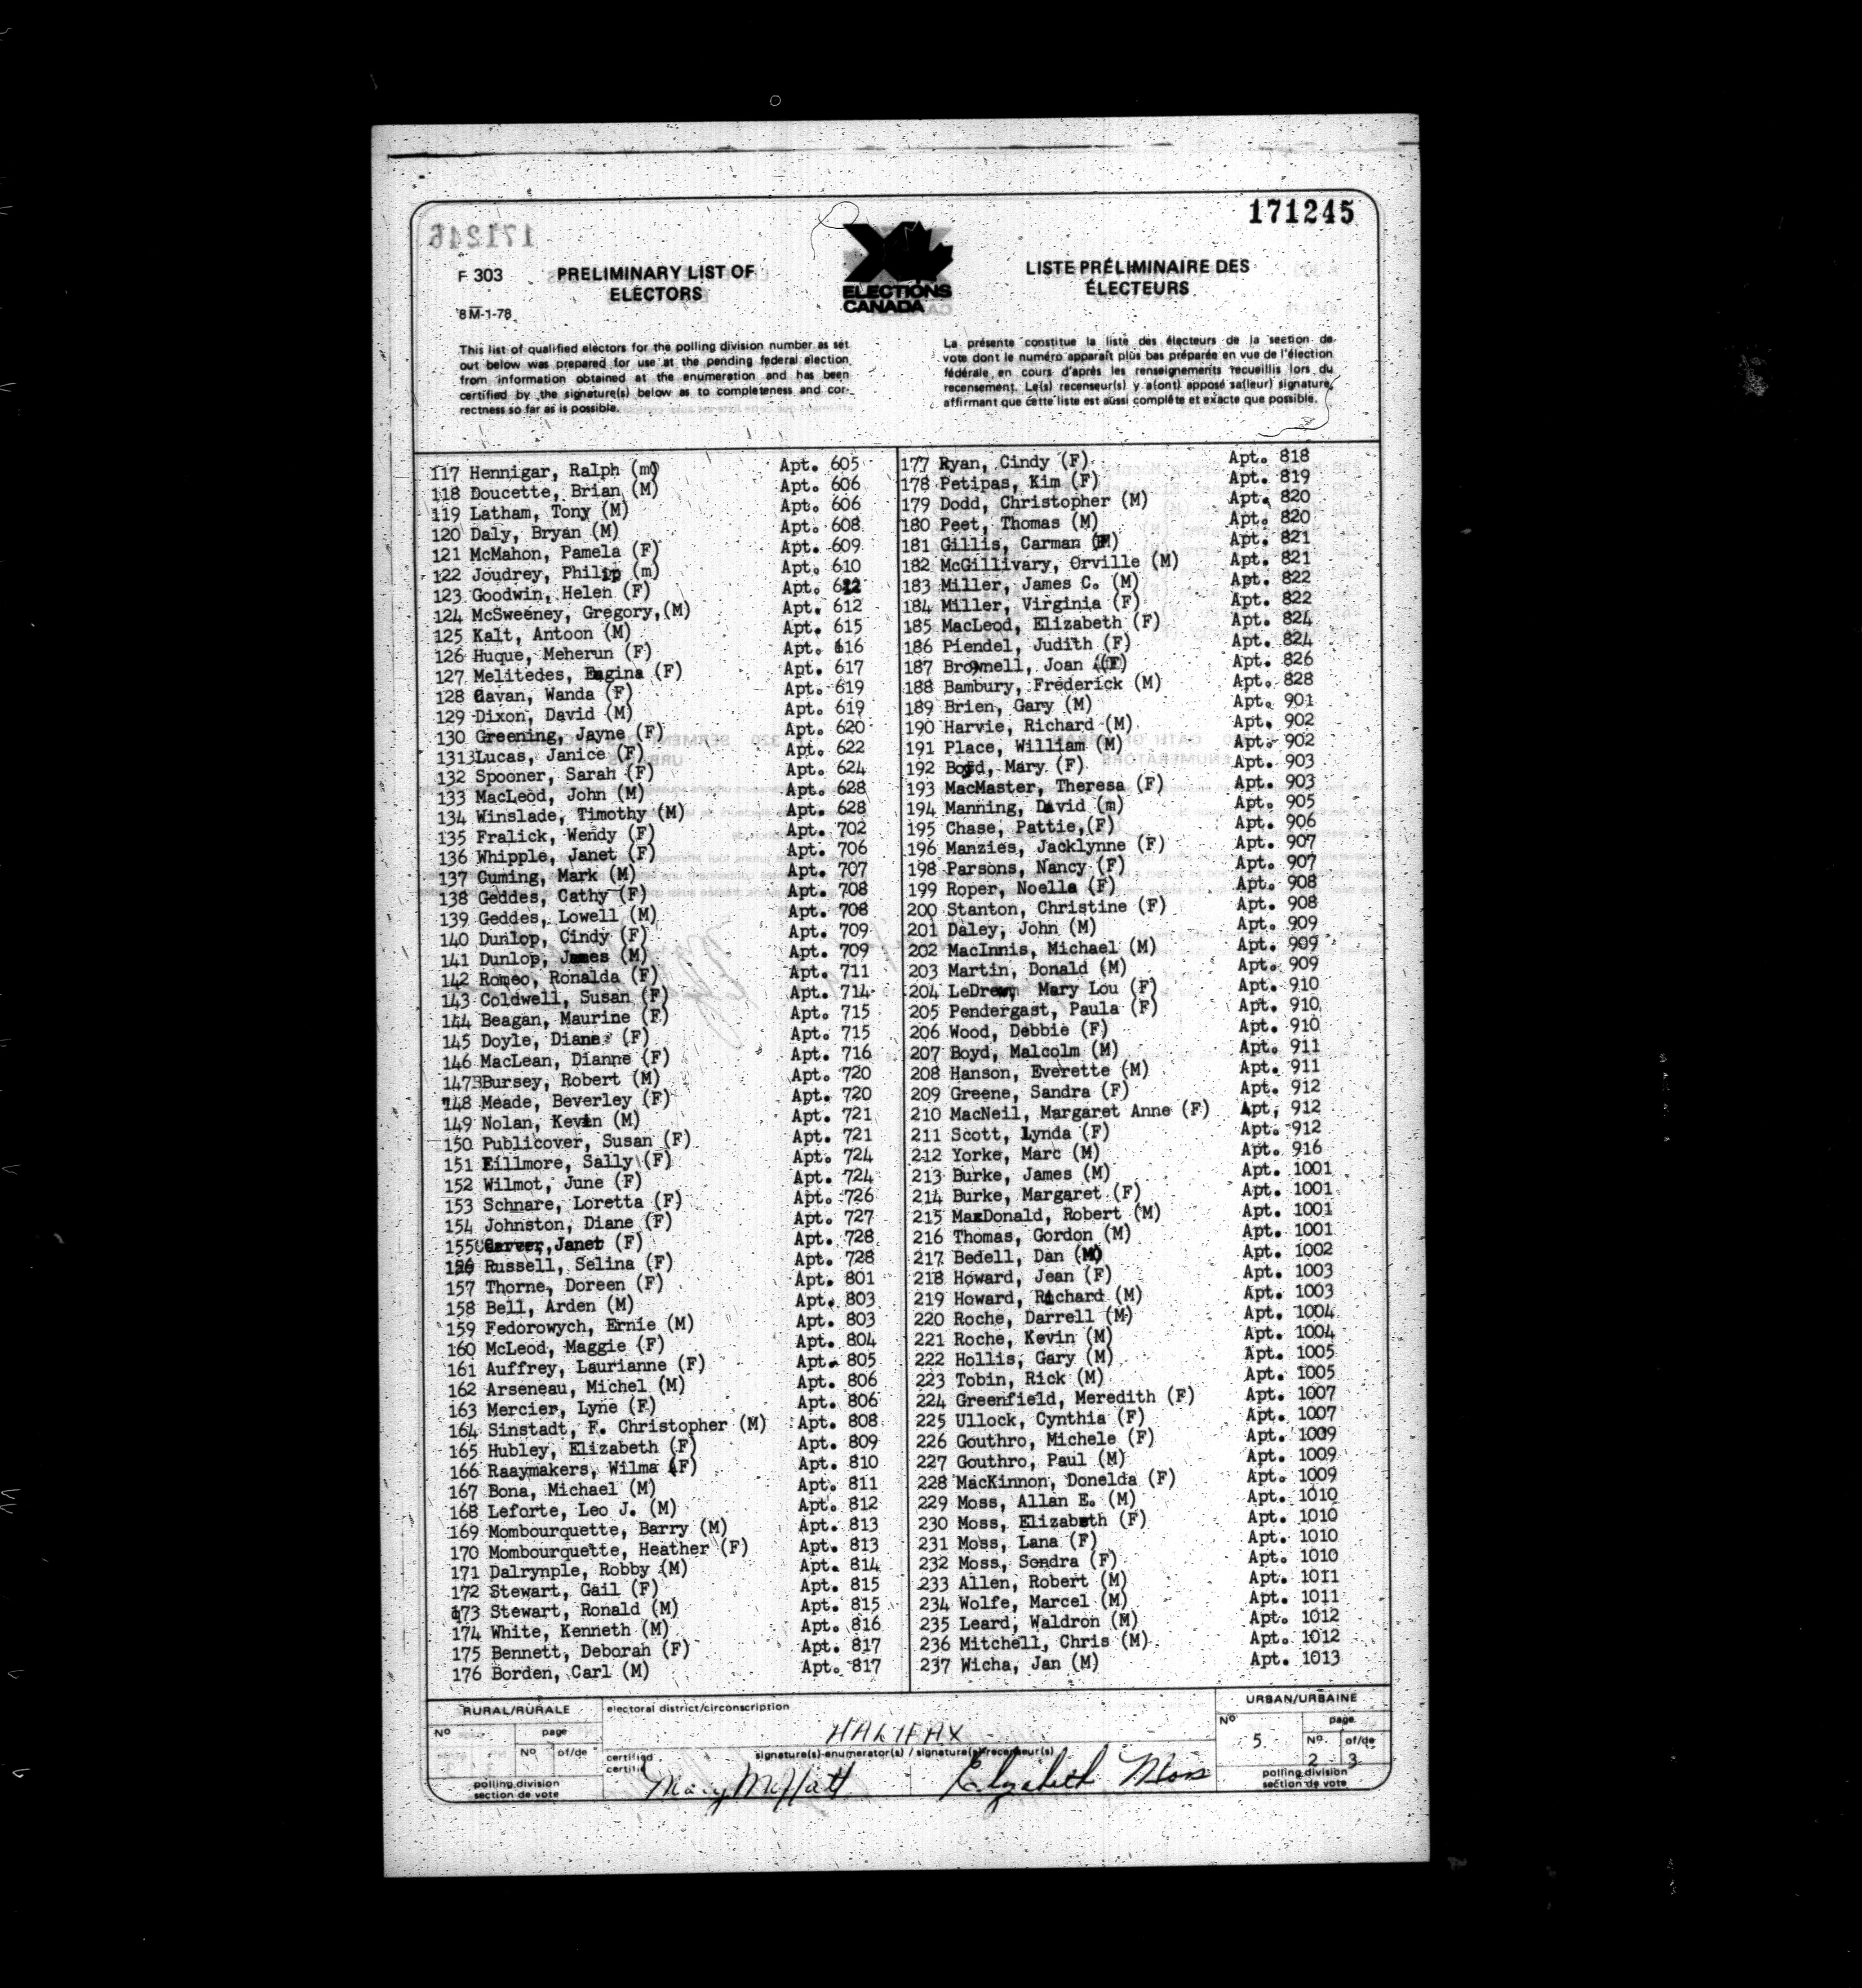 171245
F 303
PRELIMINARY LIST OF
ELECTORS
8M-1-78
ELECTIONS
CANADA
LISTE PRÉLIMINAIRE DES
ÉLECTEURS
This list of qualified electors for the polling division number as set
out below was prepared for use at the pending federal election
from information obtained at the enumeration and has been
certified by the signature(s) below as to completeness and cor-
rectness so far as is possible.
La présente constitue la liste des électeurs de la section de
vote dont le numéro apparaît plus bas préparée en vue de l'élection
fédérale en cours d'après les renseignements recueillis lors du
recensement. Le(s) recenseur(s) y a(ont) apposé sa(leur) signature,
affirmant que cette liste est aussi complète et exacte que possible.
117 Hennigar, Ralph (m) Apt. 605
118 Doucette, Brian (M) Apt. 606
119 Latham, Tony (M) Apt. 606
120 Daly, Bryan (M) Apt. 608
121 McMahon, Pamela (F) Apt. 609
122 Joudrey, Philip (m) Apt. 610
123 Goodwin, Helen (F) Apt.
124 McSweeney, Gregory,(M) Apt. 612
125 Kalt, Antoon (M) Apt. 615
126 Huque, Meherun (F) Apt. 616
127 Melitedes, (F) Apt. 617
128 Gavan, Wanda (F) Apt. 619
129 Dixon, David (M) Apt. 619
130 Greening, Jayne (F) Apt. 620
1313Lucas, Janice (F) Apt. 622
132 Spooner, Sarah (F) Apt. 624
133 MacLeod, John (M) Apt. 628
134 Winslade, Timothy (M) Apt. 628
135 Fralick, Wendy (F) Apt. 702
136 Whipple, Janet (F) Apt. 706
137 Cuming, Mark (M) Apt. 707
138 Geddes, Cathy (F) Apt. 708
139 Geddes, Lowell (M) Apt. 708
140 Dunlop, Cindy (F) Apt. 709
141 Dunlop, James (M) Apt. 709
142 Romeo, Ronalda (F) Apt. 711
143 Coldwell, Susan (F) Apt. 714
144 Beagan, Maurine (F) Apt. 715
145 Doyle, Diane (F) Apt. 715
146 MacLean, Dianne (F) Apt. 716
147BBursey, Robert (M) Apt. 720
148 Meade, Beverley (F) Apt. 720
149 Nolan, Kevin (M) Apt. 721
150 Publicover, Susan (F) Apt. 721
151 Fillmore, Sally (F) Apt. 724
152 Wilmot, June (F) Apt. 724
153 Schnare, Loretta (F) Apt. 726
154 Johnston, Diane (F) Apt. 727
155 Carver, Janet (F) Apt. 728
156 Russell, Selina (F) Apt. 728
157 Thorne, Doreen (F) Apt. 801
158 Bell, Arden (M) Apt. 803
159 Fedorowych, Ernie (M) Apt. 803
160 McLeod, Maggie (F) Apt. 804
161 Auffrey, Laurianne (F) Apt. 805
162 Arseneau, Michel (M) Apt. 806
163 Mercier, Lyne (F) Apt. 806
164 Sinstadt, F. Christopher (M) Apt. 808
165 Hubley, Elizabeth (F) Apt. 809
166 Raaymakers, Wilma (F) Apt. 810
167 Bona, Michael (M) Apt. 811
168 Leforte, Leo J. (M) Apt. 812
169 Mombourquette, Barry (M) Apt. 813
170 Mombourquette, Heather (F) Apt. 813
171 Dalrynple, Robby (M) Apt. 814
172 Stewart, Gail (F) Apt. 815
173 Stewart, Ronald (M) Apt. 815
174 White, Kenneth (M) Apt. 816
175 Bennett, Deborah (F) Apt. 817
176 Borden, Carl (M) Apt. 817
177 Ryan, Cindy (F) Apt. 818
178 Petipas, Kim (F) Apt. 819
179 Dodd, Christopher (M) Apt. 820
180 Peet, Thomas (M) Apt. 820
181 Gillis, Carman Apt. 821
182 McGillivary, Orville (M) Apt. 821
183 Miller, James C. (M) Apt. 822
184 Miller, Virginia (F) Apt. 822
185 MacLeod, Elizabeth (F) Apt. 824
186 Piendel, Judith (F) Apt. 824
187 Brownell, Joan (F) Apt. 826
188 Bambury, Frederick (M) Apt. 828
189 Brien, Gary (M) Apt. 901
190 Harvie, Richard (M) Apt. 902
191 Place, William (M) Apt. 902
192 Boyd, Mary (F) Apt. 903
193 MacMaster, Theresa (F) Apt. 903
194 Manning, David (m) Apt. 905
195 Chase, Pattie,(F) Apt. 906
196 Manzies, Jacklynne (F) Apt. 907
198 Parsons, Nancy (F) Apt. 907
199 Roper, Noella (F) Apt. 908
200 Stanton, Christine (F) Apt. 908
201 Daley, John (M) Apt. 909
202 MacInnis, Michael (M) Apt. 909
203 Martin, Donald (M) Apt. 909
204 LeDrew, Mary Lou (F) Apt. 910
205 Pendergast, Paula (F) Apt. 910
206 Wood, Debbie (F) Apt. 910
207 Boyd, Malcolm (M) Apt. 911
208 Hanson, Everette (M) Apt. 911
209 Greene, Sandra (F) Apt. 912
210 MacNeil, Margaret Anne (F) Apt, 912
211 Scott, Lynda (F) Apt. 912
212 Yorke, Marc (M) Apt. 916
213 Burke, James (M) Apt. 1001
214 Burke, Margaret (F) Apt. 1001
215 MacDonald, Robert (M) Apt. 1001
216 Thomas, Gordon (M) Apt. 1001
217 Bedell, Dan (M) Apt. 1002
218 Howard, Jean (F) Apt. 1003
219 Howard, Richard (M) Apt. 1003
220 Roche, Darrell (M) Apt. 1004
221 Roche, Kevin (M) Apt. 1004
222 Hollis, Gary (M) Apt. 1005
223 Tobin, Rick (M) Apt. 1005
224 Greenfield, Meredith (F) Apt. 1007
225 Ullock, Cynthia (F) Apt. 1007
226 Gouthro, Michele (F) Apt. 1009
227 Gouthro, Paul (M) Apt. 1009
228 MacKinnon, Donelda (F) Apt. 1009
229 Moss, Allan E. (M) Apt. 1010
230 Moss, Elizabeth (F) Apt. 1010
231 Moss, Lana (F) Apt. 1010
232 Moss, Sondra (F) Apt. 1010
233 Allen, Robert (M) Apt. 1011
234 Wolfe, Marcel (M) Apt. 1011
235 Leard, Waldron (M) Apt. 1012
236 Mitchell, Chris (M) Apt. 1012
237 Wicha, Jan (M) Apt. 1013
RURAL/RURALE
No
page
No of/de
polling division
section de vote
electoral district/circonscription
HALIFAX
certified
certifié
signature(s)-enumerator(s) / signature(s)-recenseur(s)
Mary Moffatt
Elizabeth Moss
URBAN/URBAINE
No
5
page
No. of/de
2 3
polling division
section de vote